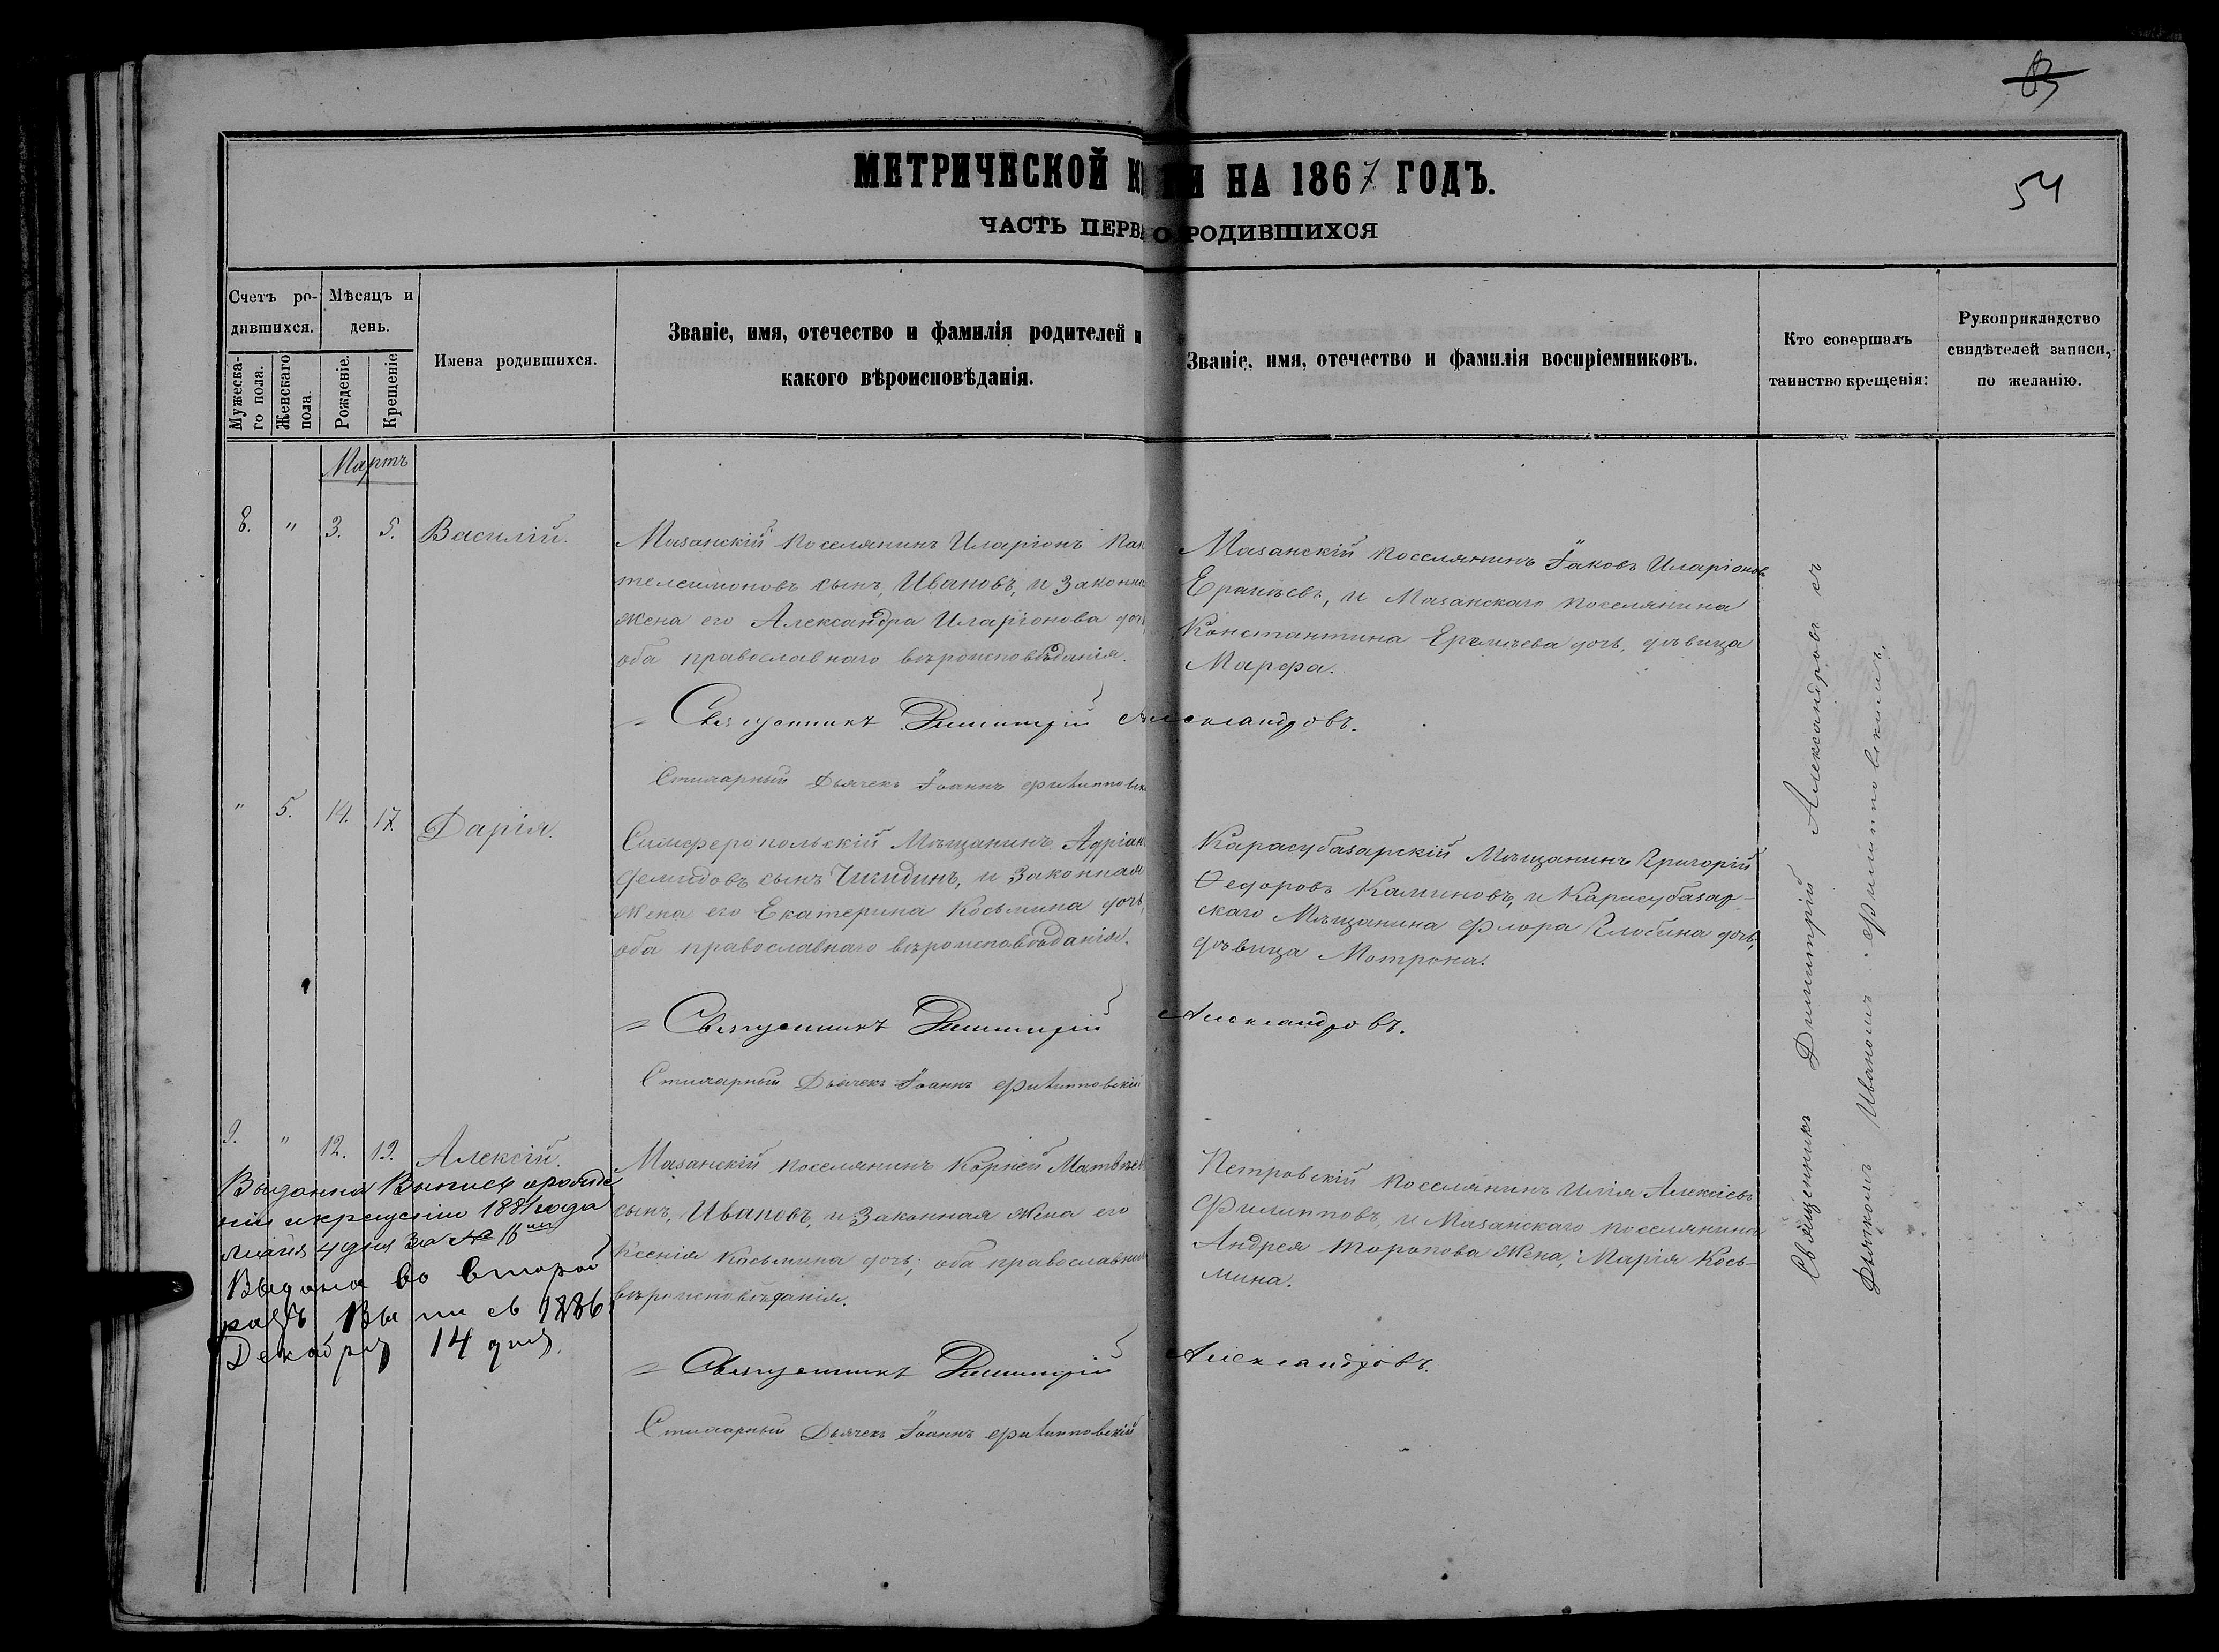 МЕТРИЧЕСКОЙ К ГИ НА 1867 ГОДЪ.
54
ЧАСТЬ ПЕРВА О РОДИВШИХСЯ
Счетъ ро-
дившихся.
Мужеска-
го пола.
Женскаго
пола.
Мѣсяцъ и
день.
Рожденіе.
Крещеніе
Имена родившихся.
Званіе, имя, отечество и фамилія родителей и
какого вѣроисповѣданія.
Званіе, имя, отечество и фамилія воспріемниковъ.
Кто совершалъ
таинство крещенія:
Рукоприкладство
свидѣтелей записи,
по желанію.
Мартъ
8. " 3. 5. Василій.
Мазанскій поселянинъ Иларіонъ Пан
телеимоновъ сынъ, Ивановъ, и законна
жена его Александра Иларіонова дочь
оба православнаго вѣроисповѣданія.
Мазанскій поселянинъ Іаковъ Иларіоновъ
и Мазанскаго поселянина
Константина Еремѣева дочь, дѣвица
Марфа.
Священникъ Димитрій Александровъ.
Стихарный Дьячекъ Іоаннъ Филипповск
" 5. 14. 17. Дарія.
Симферопольскій Мѣщанинъ Адріан
Демидовъ сынъ Чикидинъ, и законная
жена его Екатерина Косьмина дочь,
оба православнаго вѣроисповѣданія.
Карасубазарскій Мѣщанинъ Григорій
Ѳедоровъ Калиновъ, и Карасубазар-
скаго Мѣщанина Флора Глобина дочь,
дѣвица Мотрона.
Священникъ Димитрій Александровъ.
Стихарный Дьячекъ Іоаннъ Филипповскій
9. " 12. 19. Алексій.
Мазанскій поселянинъ Корней Матвѣев
сынъ, Ивановъ, и законная жена его
Ксенія Косьмина дочь; оба православна
вѣроисповѣданія.
Петровскій поселянинъ Илія Алексіевъ
Филипповъ, и Мазанскаго поселянина
Андрея Торопова жена, Марія Кось-
мина.
Выданна Выпись о рожде
ніи и крещеніи 1881 года
мая 4 дня за №
Выдана во второй
разъ Выпись 1886
Декабря 14 дня.
Священникъ Димитрій Александровъ.
Стихарный Дьячекъ Іоаннъ Филипповскій
Священникъ Димитрій Александровъ съ
Дьячкомъ Иваномъ Филипповскимъ.